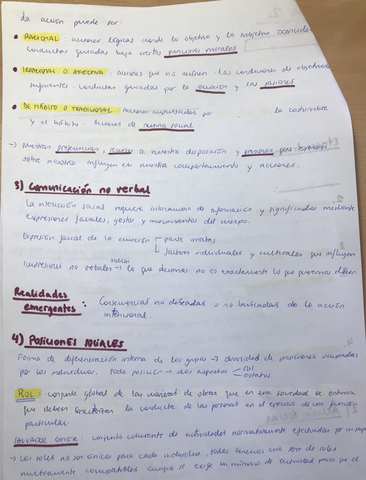 La acción puede ser:
• RACIONAL: acciones lógicas donde lo objetivo y lo subjetivo coinciden
conductas guiadas bajo ciertos principios morales
• IRRACIONAL O AFECTIVA: acciones que no reúnen las condiciones de objetividad
suficientes. conductas guiadas por la emoción y las pasiones
• DE HÁBITO O TRADICIONAL: acciones impulsadas por la costumbre
y el hábito. Acciones de rutina social
→ Nuestras preferencias, a nuestra disposición y
sobre nosotros influyen en nuestro comportamiento y acciones.
3) Comunicación no verbal
La interacción social requiere intercambio de información y significados mediante
expresiones faciales, gestos y movimientos del cuerpo.
Expresión facial de la emoción parte innata
factores individuales y culturales que influyen
Impresiones no verbales → lo que decimos no es exactamente lo que queremos
Realidades emergentes: Consecuencias no deseadas o no buscadas de la acción
intencional.
4) POSICIONES SOCIALES
Forma de diferenciación interna de los grupos → diversidad de posiciones ocupadas
por los individuos. Toda posición → dos aspectos rol
estatus
ROL: conjunto global de las maneras de obrar que en una sociedad se estima
que deben caracterizar la conducta de las personas en el ejercicio de una función
particular.
SALVADOR GINER: conjunto coherente de actividades normativamente efectuadas por un
→ Los roles no son únicos para cada individuo, todos tenemos una serie de roles
mutuamente compatibles aunque se exige un mínimo de actividad para que el